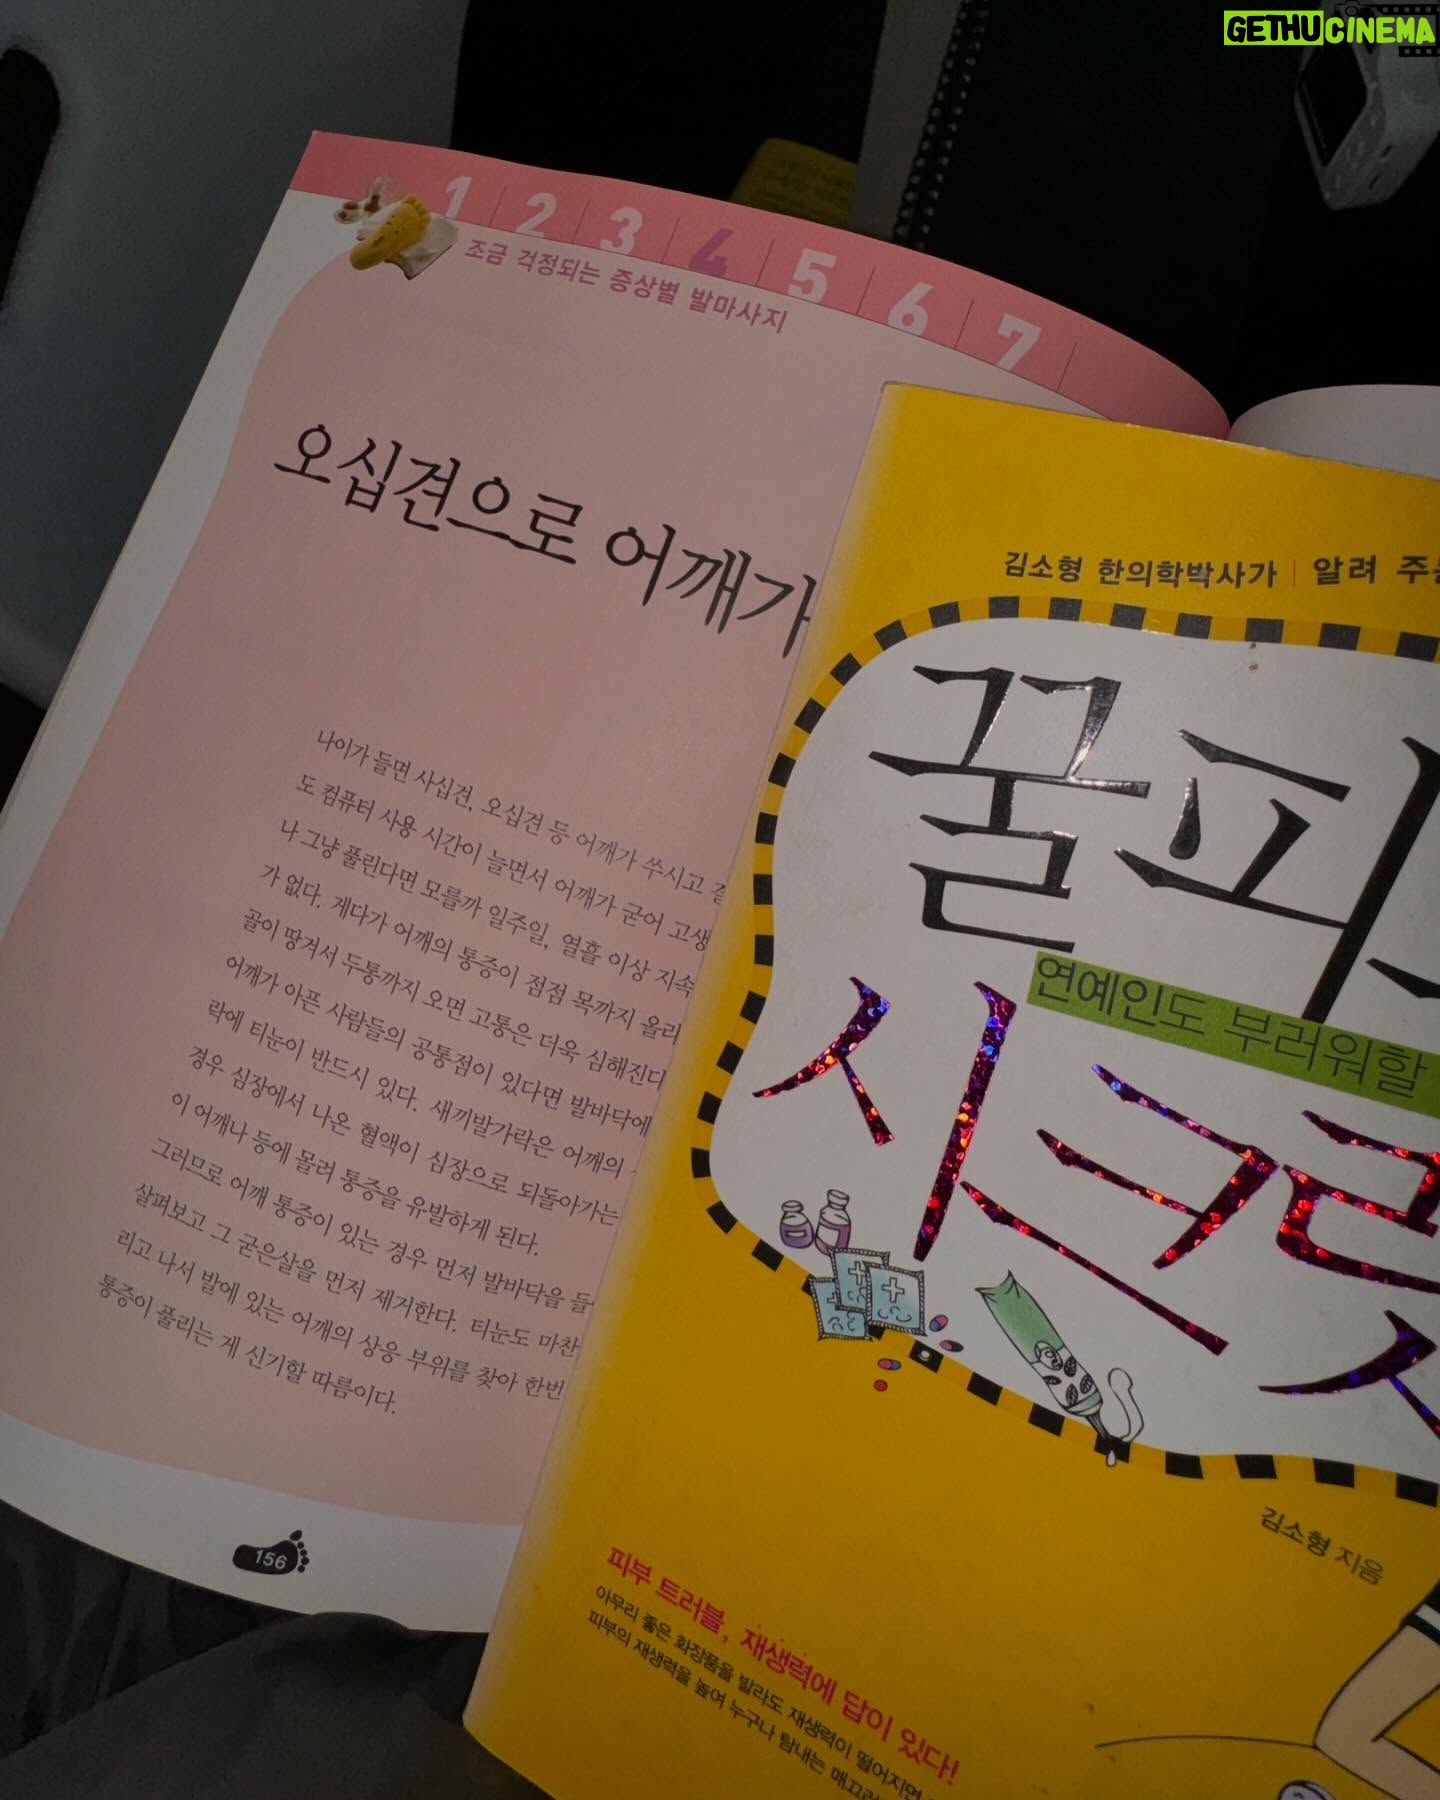 GETHUCINEMA
1 2 3 4 5 6 7
조금 걱정되는 증상별 발마사지
오십견으로 어깨가
나이가 들면 사십견, 오십견 등 어깨가 쑤시고
도 컴퓨터 사용 시간이 늘면서 어깨가 굳어 고생
나 그냥 풀린다면 모를까 일주일, 열흘 이상 지속
가 없다. 게다가 어깨의 통증이 점점 목까지 올라
골이 땅겨서 두통까지 오면 고통은 더욱 심해진다
어깨가 아픈 사람들의 공통점이 있다면 발바닥에
락에 티눈이 반드시 있다. 새끼발가락은 어깨의
경우 심장에서 나온 혈액이 심장으로 되돌아가는
이 어깨나 등에 몰려 통증을 유발하게 된다.
그러므로 어깨 통증이 있는 경우 먼저 발바닥을
살펴보고 그 굳은살을 먼저 제거한다. 티눈도 마찬
리고 나서 발에 있는 어깨의 상응 부위를 찾아 한번
통증이 풀리는 게 신기할 따름이다.
156
김소형 한의학박사가 | 알려 주는
꿀피
연예인도 부러워할
시크릿
김소형 지음
피부 트러블, 재생력에 답이 있다!
아무리 좋은 화장품을 발라도 재생력이 떨어지면
피부의 재생력을 높여 누구나 탐내는